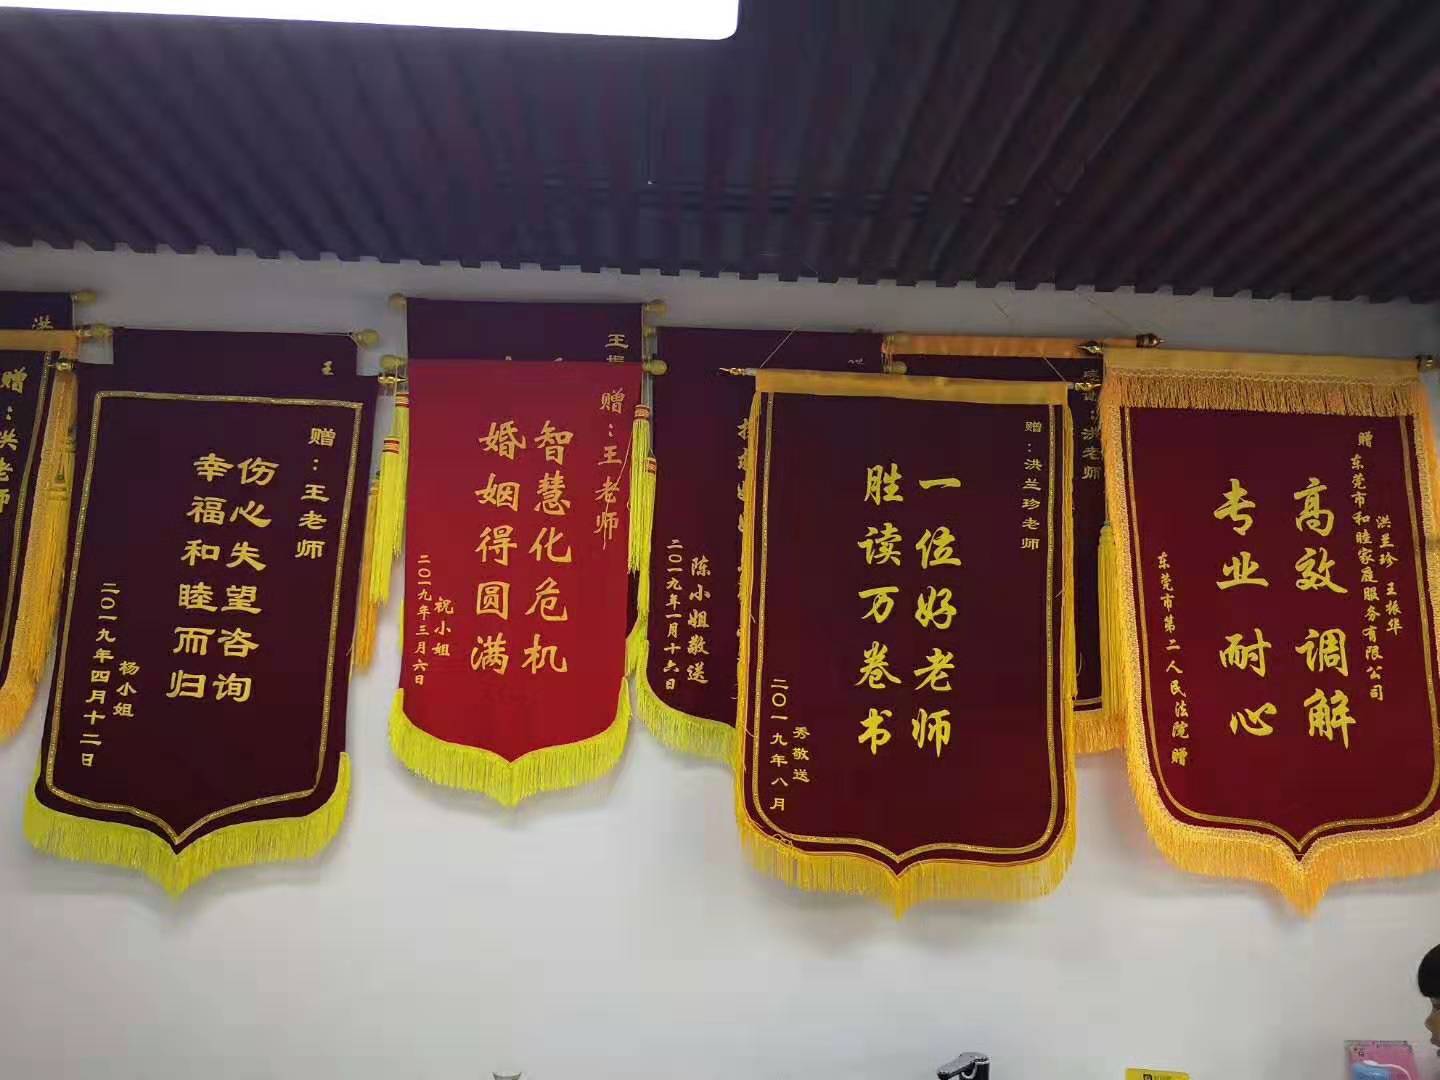 洪
赠：洪老师
王
赠：王老师
伤心失望咨询
幸福和睦而归
杨小姐
二〇一九年四月十二日
王振
赠：王老师
智慧化危机
婚姻得圆满
祝小姐
二〇一九年三月六日
陈小姐敬送
二〇一九年一月十六日
赠：洪兰珍老师
一位好老师
胜读万卷书
秀敬送
二〇一九年八月
洪老师
赠 东莞市和睦家庭服务有限公司
洪兰珍 王振华
高效 调解
专业 耐心
东莞市第二人民法院 赠